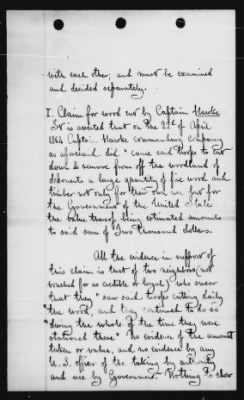 with each other, and must be examined
and decided separately.
I. Claim for wood cut by Captain Hawke
It is asserted that on the 22d of April
1864 Captain Hawke commanding company
as aforesaid did "cause said troops to cut
down & remove from off the woodland of
deponents a large quantity of pine wood and
timber not only for their own use but for
the Government of the United States
the value thereof being estimated amounts
to said sum of Two thousand dollars.
All the evidence in support of
this claim is that of two neighbors (not
vouched for as credible or loyal) who swear
that they "saw said troops cutting daily
"the wood, and they continued to do so
"during the whole of the time they were
stationed there" No evidence of the amount
taken or value, and no evidence by any
U.S. officer of the taking by authority
and use by Government. Nothing to show